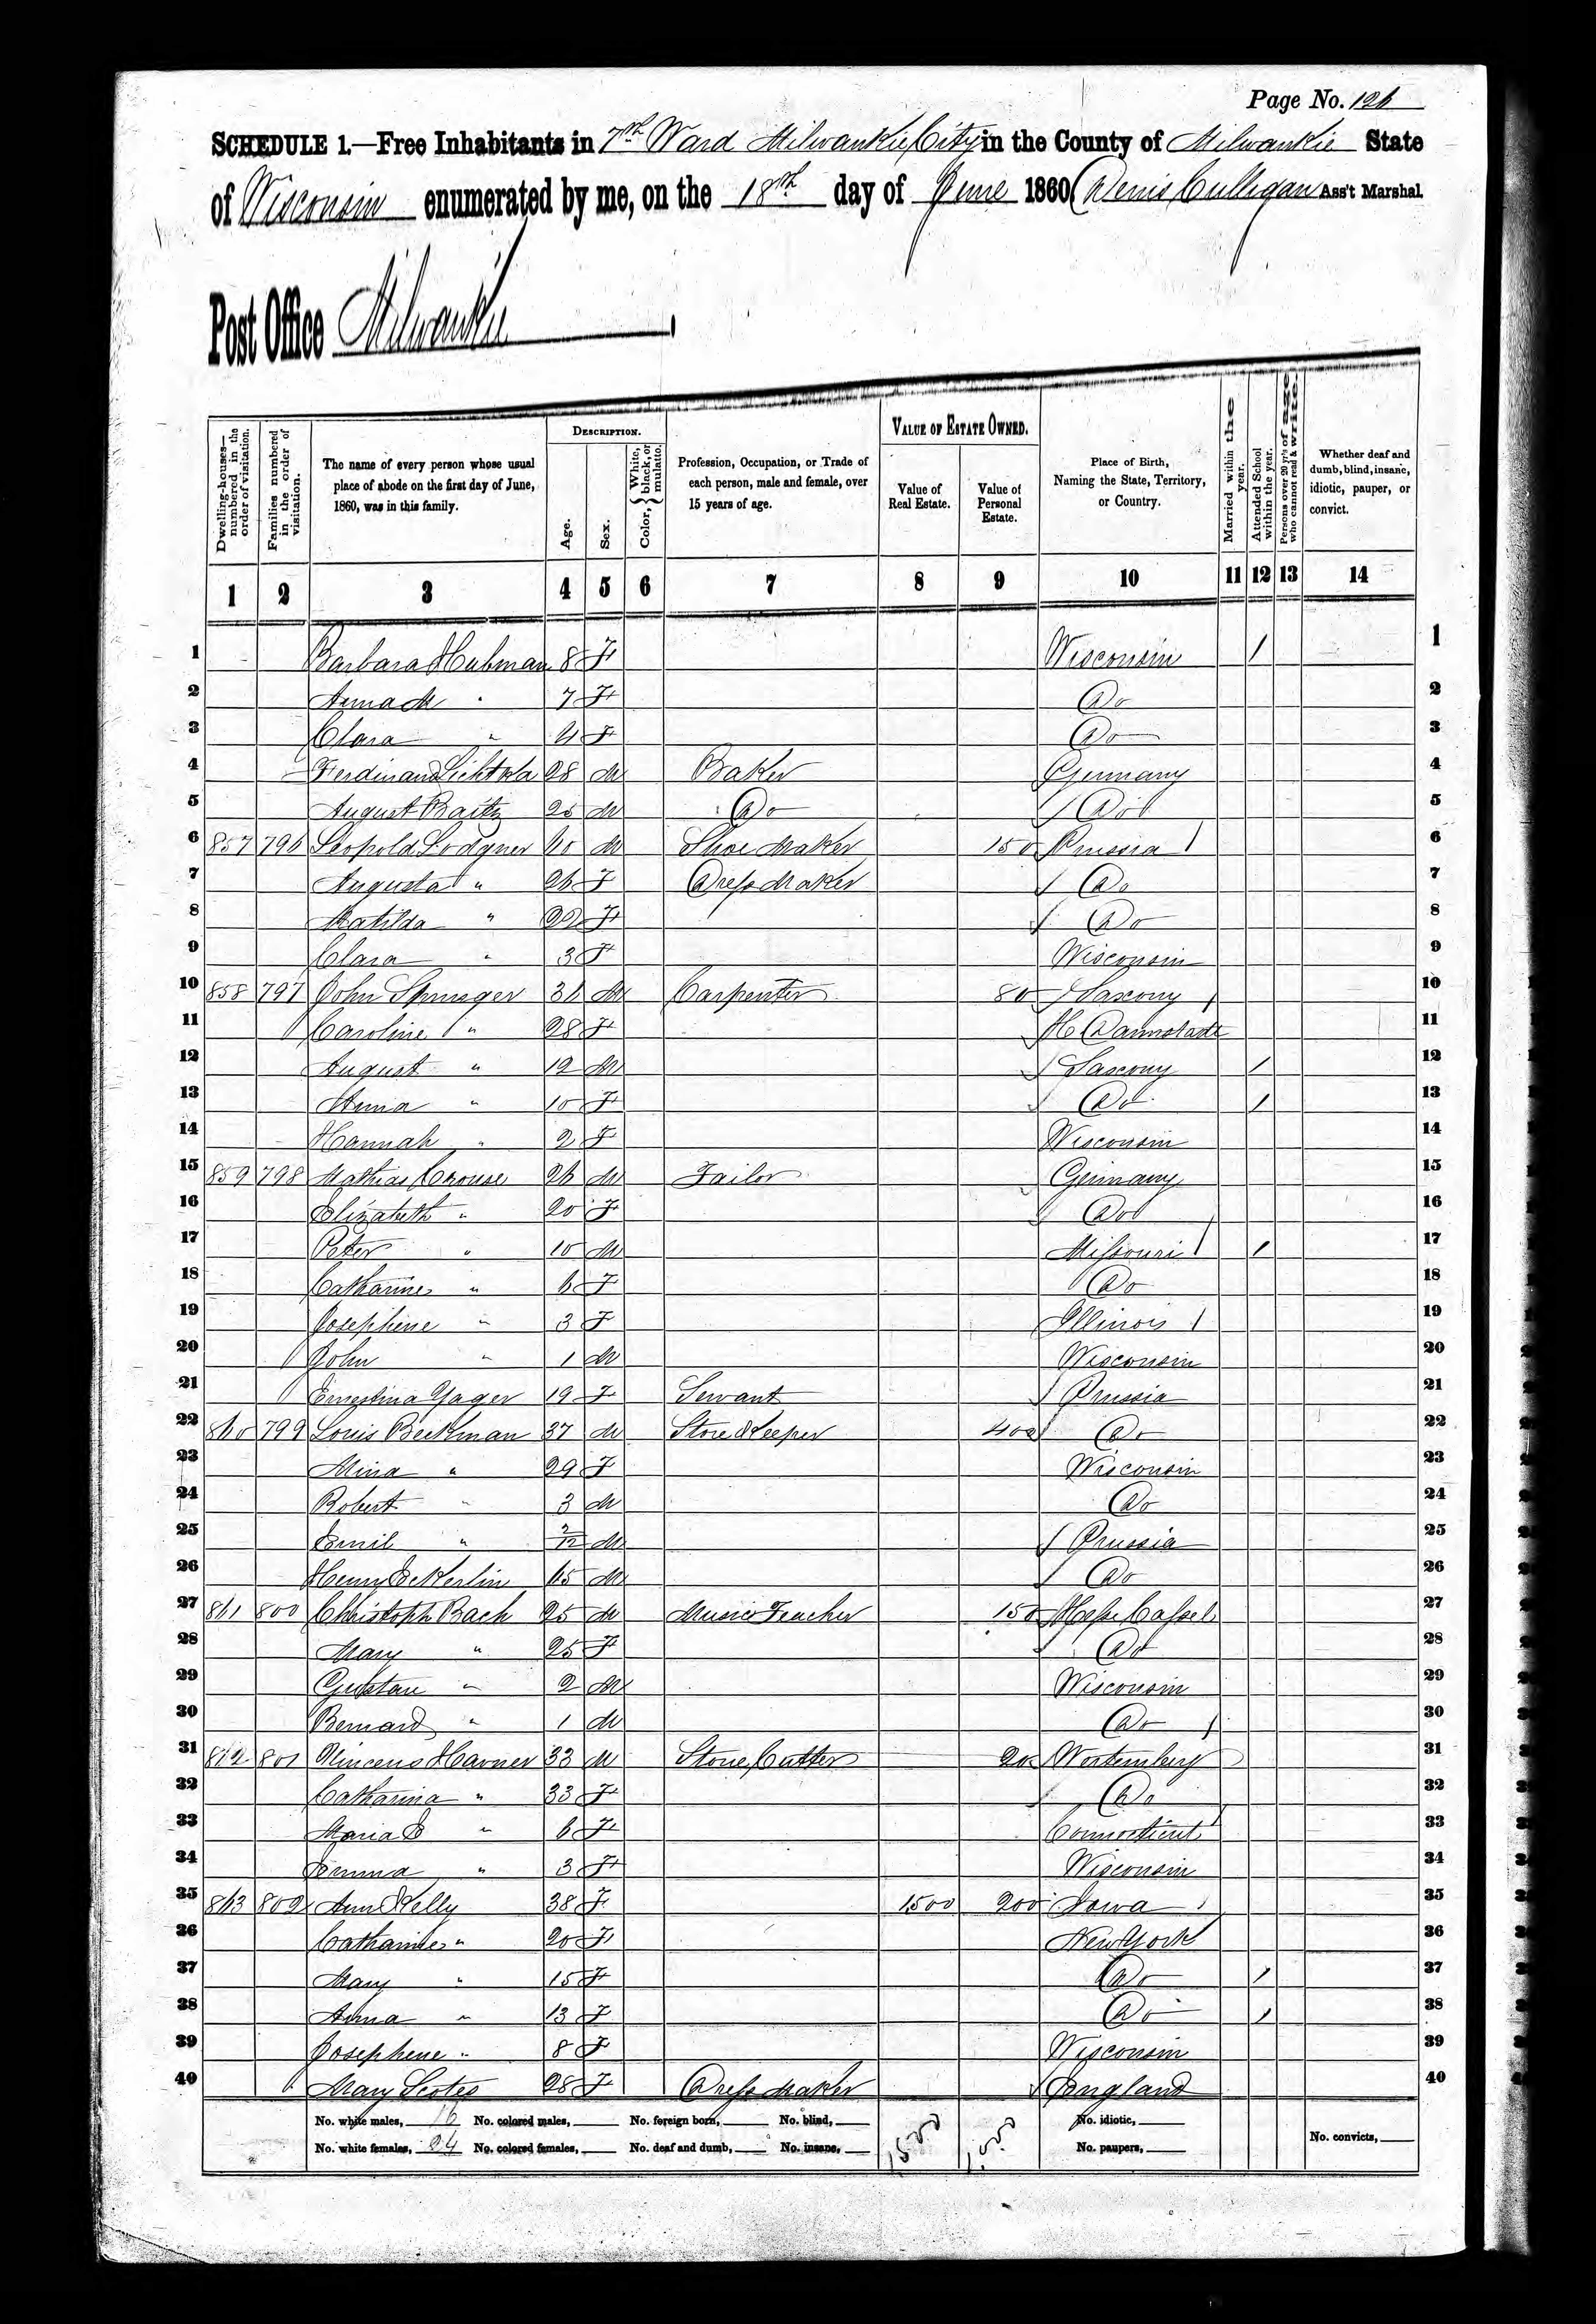 Page No. 126
SCHEDULE 1.—Free Inhabitants in 7th Ward Milwaukie City in the County of Milwaukie State
of Wisconsin enumerated by me, on the 18th day of June 1860 Denis Culligan Ass't Marshal.
Post Office Milwaukie
Dwelling-houses—numbered in the order of visitation.
Families numbered in the order of visitation.
The name of every person whose usual place of abode on the first day of June, 1860, was in this family.
DESCRIPTION.
Age.
Sex.
Color, { White, black, or mulatto.
Profession, Occupation, or Trade of each person, male and female, over 15 years of age.
VALUE OF ESTATE OWNED.
Value of Real Estate.
Value of Personal Estate.
Place of Birth, Naming the State, Territory, or Country.
Married within the year.
Attended School within the year.
Persons over 20 y'rs of age who cannot read & write.
Whether deaf and dumb, blind, insane, idiotic, pauper, or convict.
1 2 3 4 5 6 7 8 9 10 11 12 13 14
1 Barbara Hubman 8 F Wisconsin / 1
2 Anna M " 7 F Do 2
3 Clara " 4 F Do 3
4 Ferdinand 28 M Baker Germany 4
5 August Baitz 25 M Do Do 5
6 857 796 Leopold Lodgner 40 M Shoe Maker 150 Prussia 6
7 Augusta " 26 F Dress Maker Do 7
8 Matilda " 22 F Do 8
9 Clara " 3 F Wisconsin 9
10 858 797 John 36 M Carpenter 80 Saxcony 10
11 Caroline " 28 F H Darmstadt 11
12 August " 12 M Saxcony / 12
13 Anna " 10 F Do / 13
14 Hannah " 2 F Wisconsin 14
15 859 798 Mathias Crouse 26 M Tailor Germany 15
16 Elizabeth " 20 F Do 16
17 Peter " 10 M Missouri / 17
18 Catharine " 6 F Do 18
19 Josephine " 3 F Illinois 19
20 John " 1 M Wisconsin 20
21 Ernestina Yager 19 F Servant Prussia 21
22 860 799 Louis Beckman 37 M Store Keeper 400 Do 22
23 Mina " 29 F Wisconsin 23
24 Robert " 3 M Do 24
25 Emil " 2/12 M Prussia 25
26 Henry Eckerlin 45 M Do 26
27 861 800 Christoph Bach 25 M Music Teacher 150 Hesse Cassel 27
28 Mary " 25 F Do 28
29 Gustav " 2 M Wisconsin 29
30 Bernard " 1 M Do 30
31 862 801 Vincens Havner 33 M Stone Cutter 20 Wortemberg 31
32 Catharina " 33 F Do 32
33 Maria E " 6 F Connecticut 33
34 Emma " 3 F Wisconsin 34
35 863 802 Ann Kelly 38 F 1500 200 Iowa 35
36 Catharine " 20 F New York 36
37 Mary " 15 F Do / 37
38 Anna " 13 F Do / 38
39 Josephene " 8 F Wisconsin 39
40 Mary 28 F Dress Maker England 40
No. white males, 16 No. colored males, No. foreign born, No. blind, No. idiotic,
No. white females, 24 No. colored females, No. deaf and dumb, No. insane, 1500 1000 No. paupers, No. convicts,